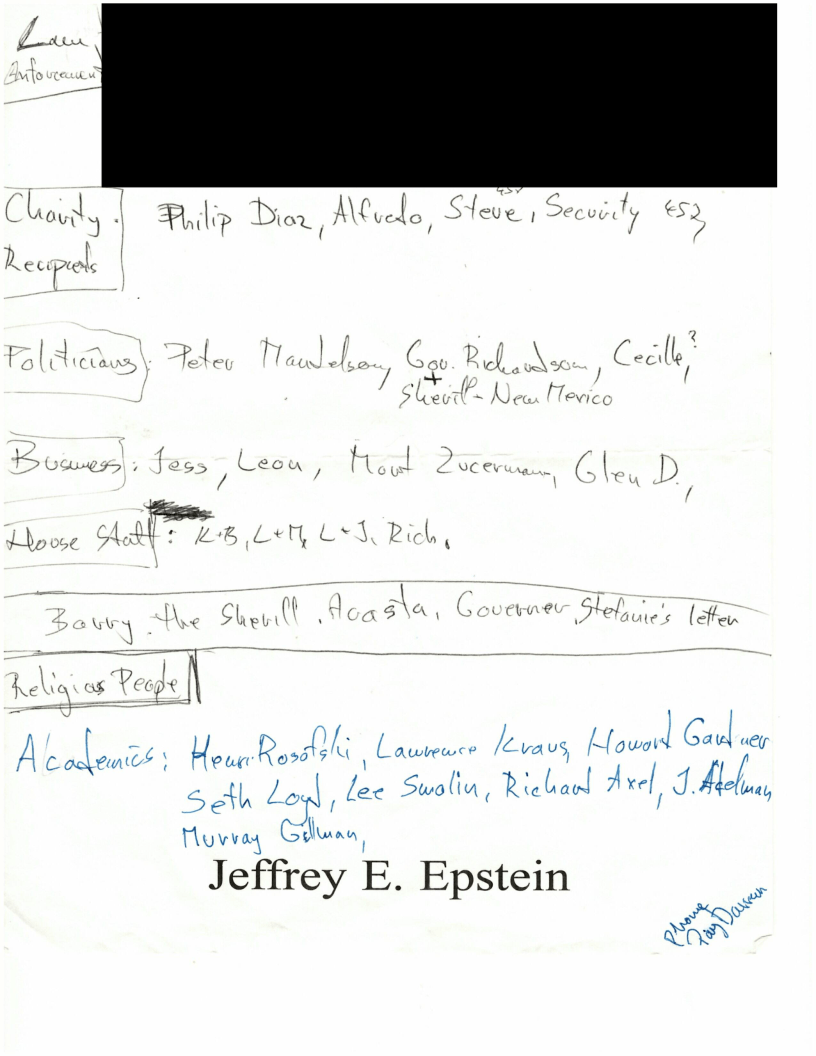 Law
Enforcement
Charity
Recipients
Philip Diaz, Alfredo, Steve, Security 452,
Politicians: Peter Mandelson, Gov. Richardson, Cecille,?
+
Sheriff - New Mexico
Business: Jess, Leon, Mout Zucermann, Glen D.,
House Staff: K+B, L+M, L+J, Rich,
Barry, the Sheriff, Acasta, Governer, Stefanie's letter
Religios People
Alcademics: Henri Rosofski, Lawrence Kraus, Howord Gardner
Seth Loyd, Lee Smolin, Richard Axel, J. Adelman,
Murray Gellman,
Jeffrey E. Epstein
Phone
Darren